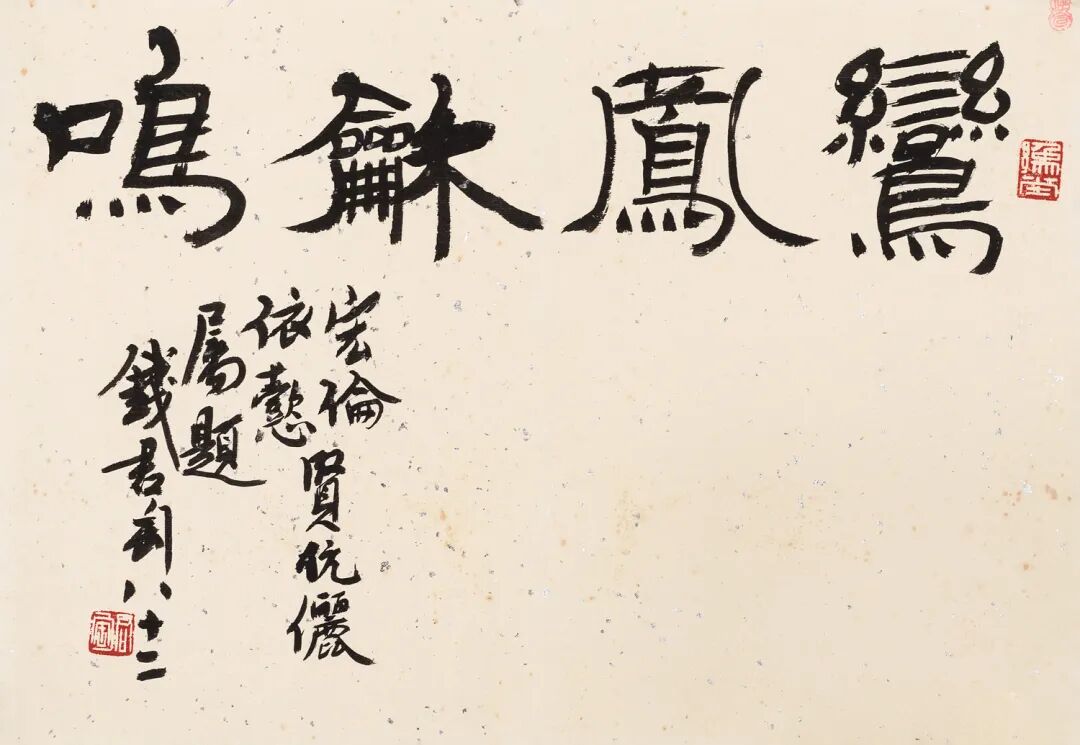 鸞鳳龢鳴
宏倫
依懿
賢伉儷
屬題
錢君匋八十二
君匋